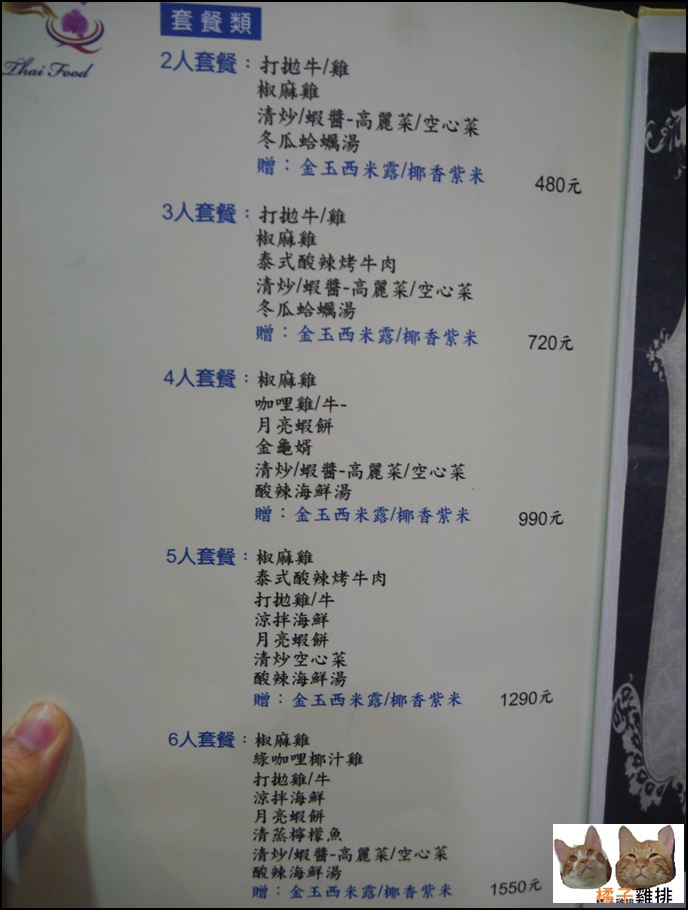 Thai Food
套餐類
2人套餐：打拋牛/雞
椒麻雞
清炒/蝦醬-高麗菜/空心菜
冬瓜蛤蠣湯
贈：金玉西米露/椰香紫米 480元
3人套餐：打拋牛/雞
椒麻雞
泰式酸辣烤牛肉
清炒/蝦醬-高麗菜/空心菜
冬瓜蛤蠣湯
贈：金玉西米露/椰香紫米 720元
4人套餐：椒麻雞
咖哩雞/牛-
月亮蝦餅
金龜婿
清炒/蝦醬-高麗菜/空心菜
酸辣海鮮湯
贈：金玉西米露/椰香紫米 990元
5人套餐：椒麻雞
泰式酸辣烤牛肉
打拋雞/牛
涼拌海鮮
月亮蝦餅
清炒空心菜
酸辣海鮮湯
贈：金玉西米露/椰香紫米 1290元
6人套餐：椒麻雞
綠咖哩椰汁雞
打拋雞/牛
涼拌海鮮
月亮蝦餅
清蒸檸檬魚
清炒/蝦醬-高麗菜/空心菜
酸辣海鮮湯
贈：金玉西米露/椰香紫米 1550元
橘子雞排